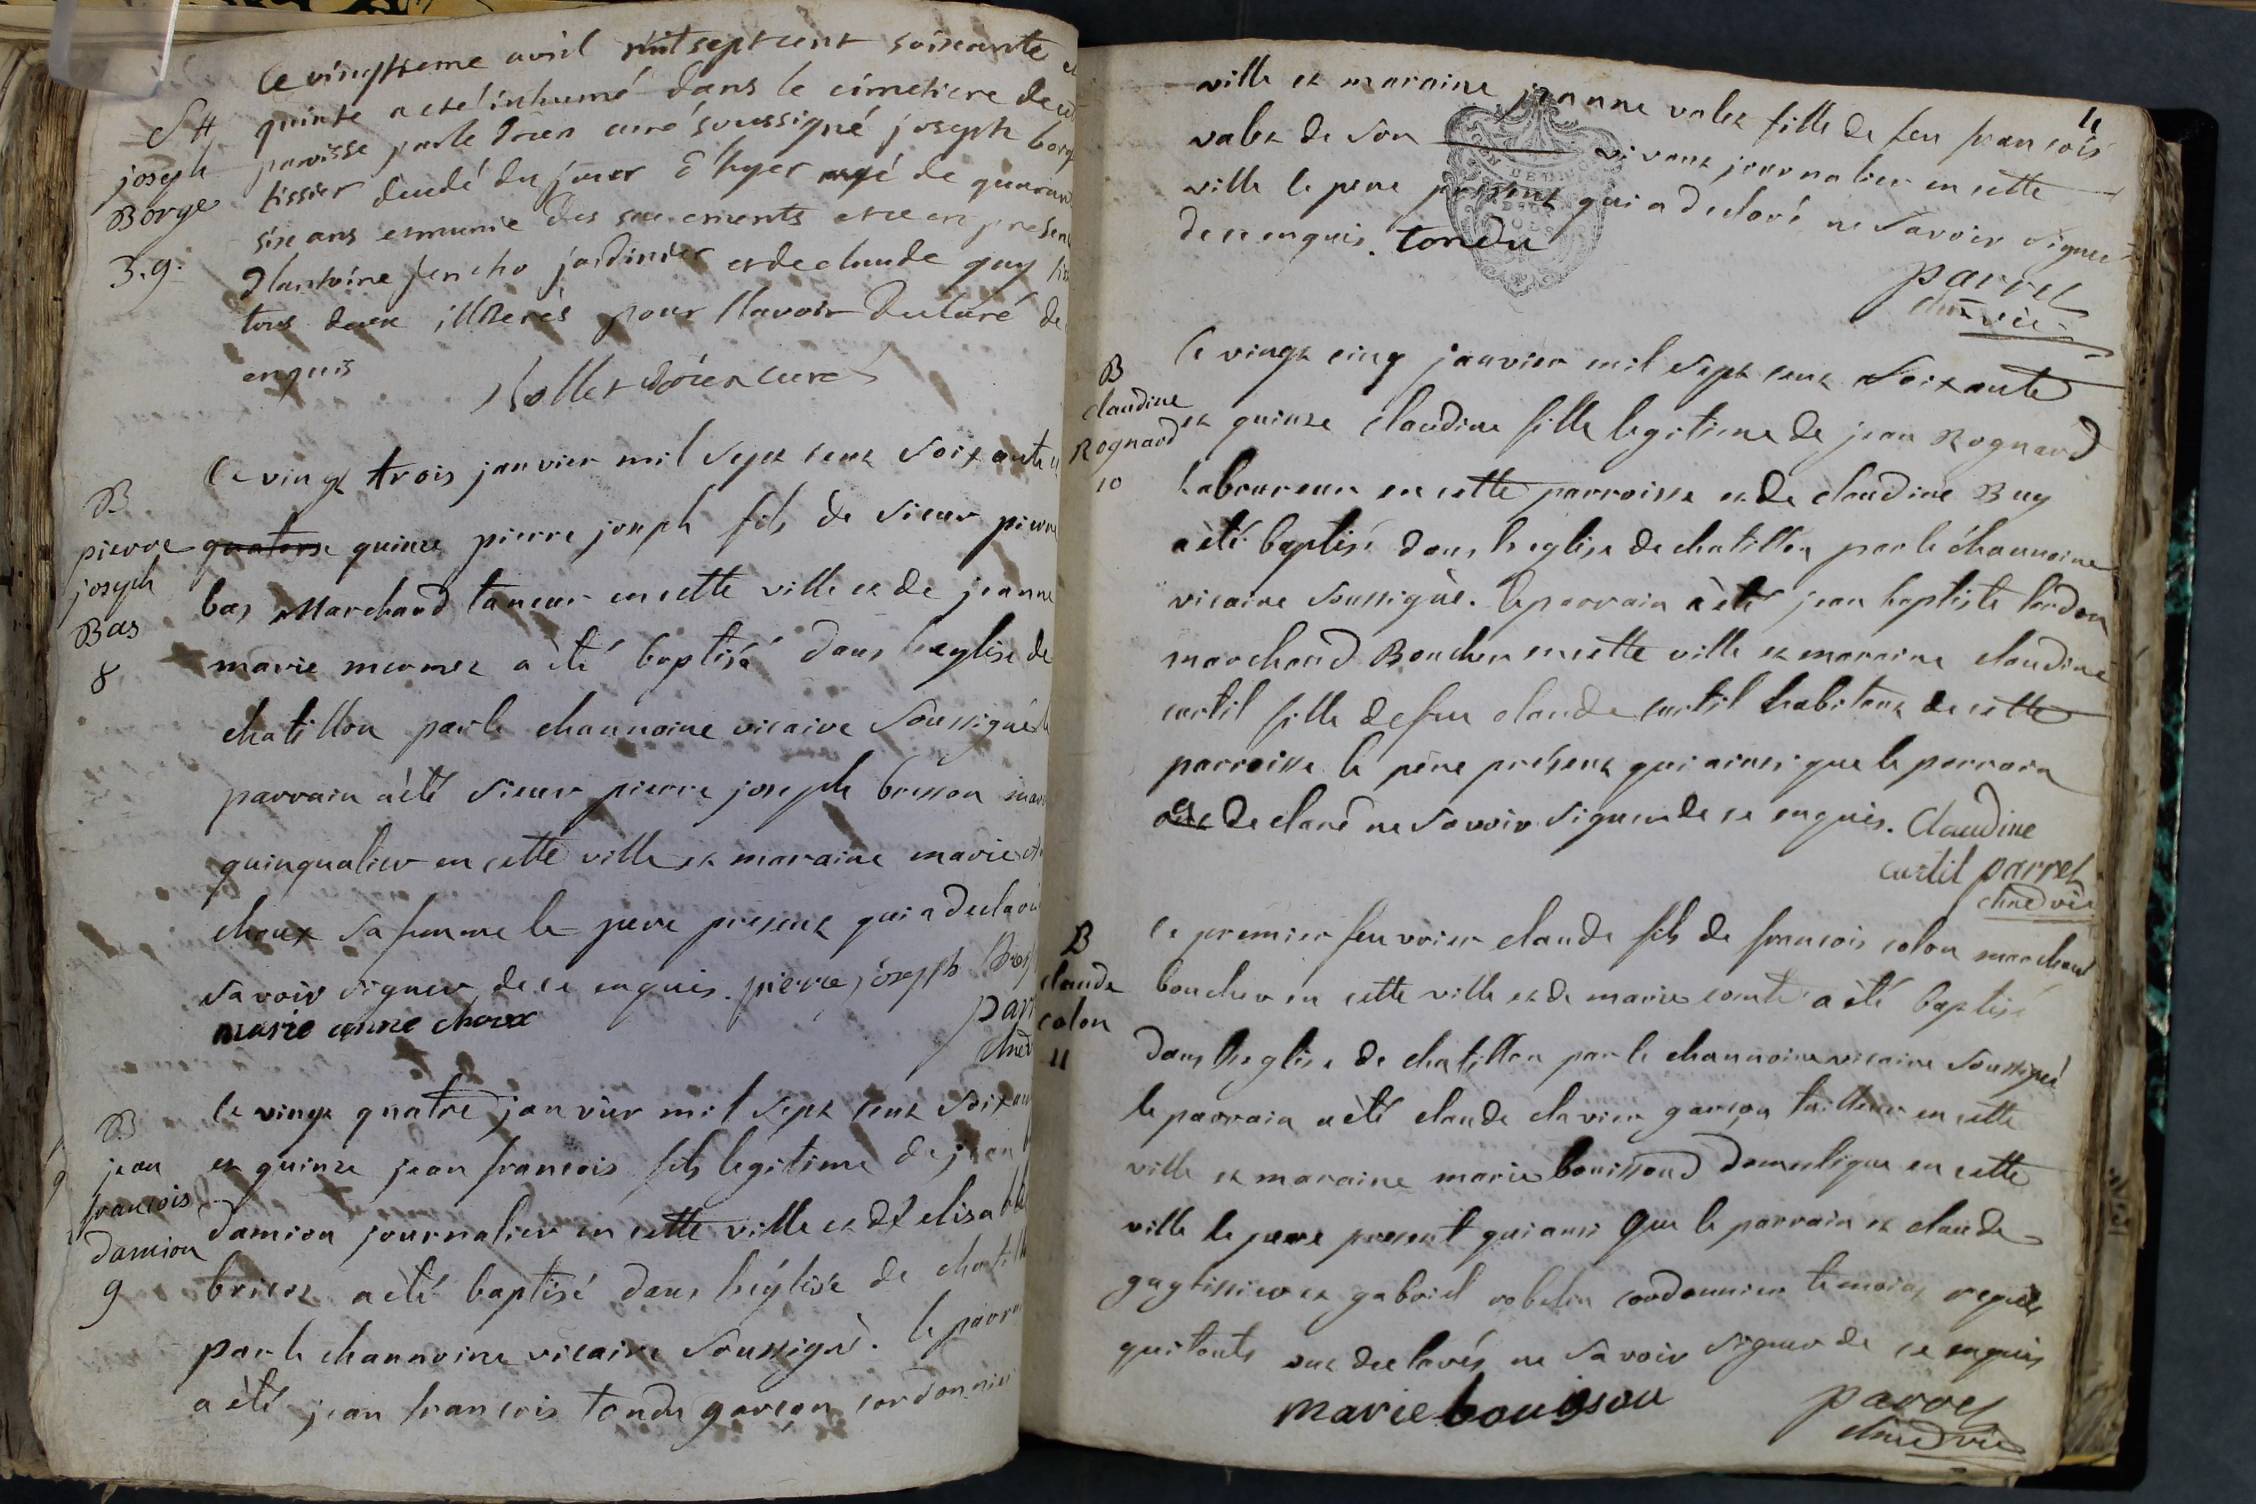 le vingtieme avril mil sept cent soixante et
quinze a eté inhumé dans le cimetiere de cet
parroisse par le doien curé soussigné joseph borg
tissier decedé du jour d'hyer agé de quaran
size ans et munie des sacrements et ce en presen
d'antoine jardinier et de claude guy tiss
tous deux illiterés pour l'avoir declaré de
enquis
Nollet doien curé
S H
joseph
Borge
3.9.
le vingt trois janvier mil sept cent soixante et
quatorse quinze pierre joseph fils de sieur pierre
bas Marchand taneur en cette ville et de jeanne
marie meunier a èté baptisé dans l'eglise de
chatillon par le chanoine vicaire soussigné le
parrain a èté sieur pierre joseph brisson mar
quinqualier en cette ville et maraine marie
choux sa femme le pere present qui a declaré
savoir signer de ce enquis. pierre joseph Bris
marie anne choux
parr
chne
B
pierre
joseph
Bas
8
le vingt quatre janvier mil sept cent soixan
et quinze jean francois fils legitime de jean
damion journalier en cette ville et d'elisabeth
a èté baptisé dans l'église de chatill
par le channoine vicaire soussigné. le parra
a èté jean francois tondu garçon cordonnier
B
jean
francois
damion
9
11
ville et maraine jeanne valet fille de feu francois
valet de son vivant journalier en cette
ville le pere present qui a declaré ne savoir signer
de ce enquis. tondu
parret
chne vic
le vingt cinq janvier mil sept cent soixante
et quinze claudine fille legitime de jean Rognard
laboureur en cette parroisse et de claudine Buy
a èté baptisé dans l'eglise de chatillon par le channoine
vicaire soussigné. le parrain a èté jean baptiste
marchand Boucher en cette ville et maraine claudine
curtil fille de feu claude curtil habitant de cette
parroisse le père présent qui ainsi que le parrain
ont declaré ne savoir signer de ce enquis. Claudine
curtil parret
chne vic
B
claudine
Rognard
10
le premier feuvrier claude fils de francois colon marchand
boucher en cette ville et de marie comte a èté baptisé
dans l'eglise de chatillon par le channoine vicaire soussigné
le parrain a èté claude clavier garçon tailleur en cette
ville et maraine marie bouissoud domestique en cette
ville le pere present qui ainsi que le parrain et claude
guy tissier et gabriel robelin cordonnier temoins requis
qui touts ont declarés ne savoir signer de ce enquis
marie bouisou
parret
chne vic
B
claude
colon
11